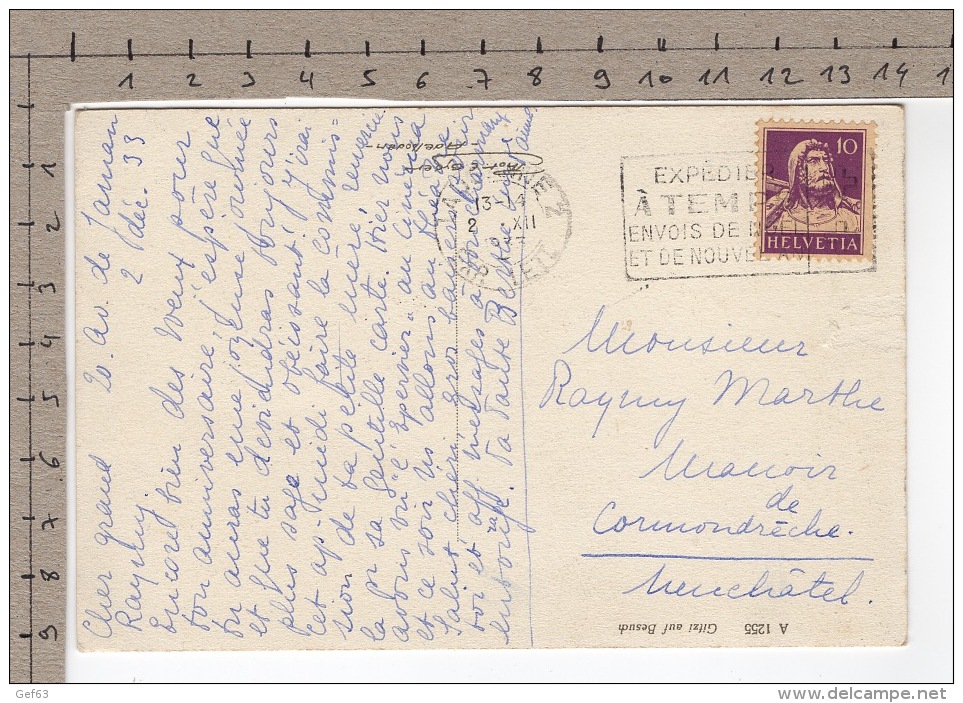 1 2 3 4 5 6 7 8 9 10 11 12 13 14
1
2
3
4
5
6
7
8
9
20 av. de Jaman
2 déc. 33
Cher grand
Raymy
Encore bien des voeux pour
ton anniversaire, j'espère que
tu auras eu une joyeuse journée
et que tu deviendras toujours
plus sage et obéissant, j'irai
cet ap-midi faire la commis=
sion de ta petite mère, remercie
la pr sa gentille carte. Hier nous
avons vu "l'Epervier" au cinéma
et ce soir ns allons au théâtre
Salut chéri, gros baisers
toi et aff. messages à
entourage. Ta tante
13-14
2 XII
EXPÉDIE
À TEMP
ENVOIS DE
ET DE NOUVE
10
HELVETIA
Monsieur
Raymy Marthe
Manoir
de
Cormondrèche.
Neuchâtel.
A 1255 Gitzi auf Besuch
Gef63
delcampe.net